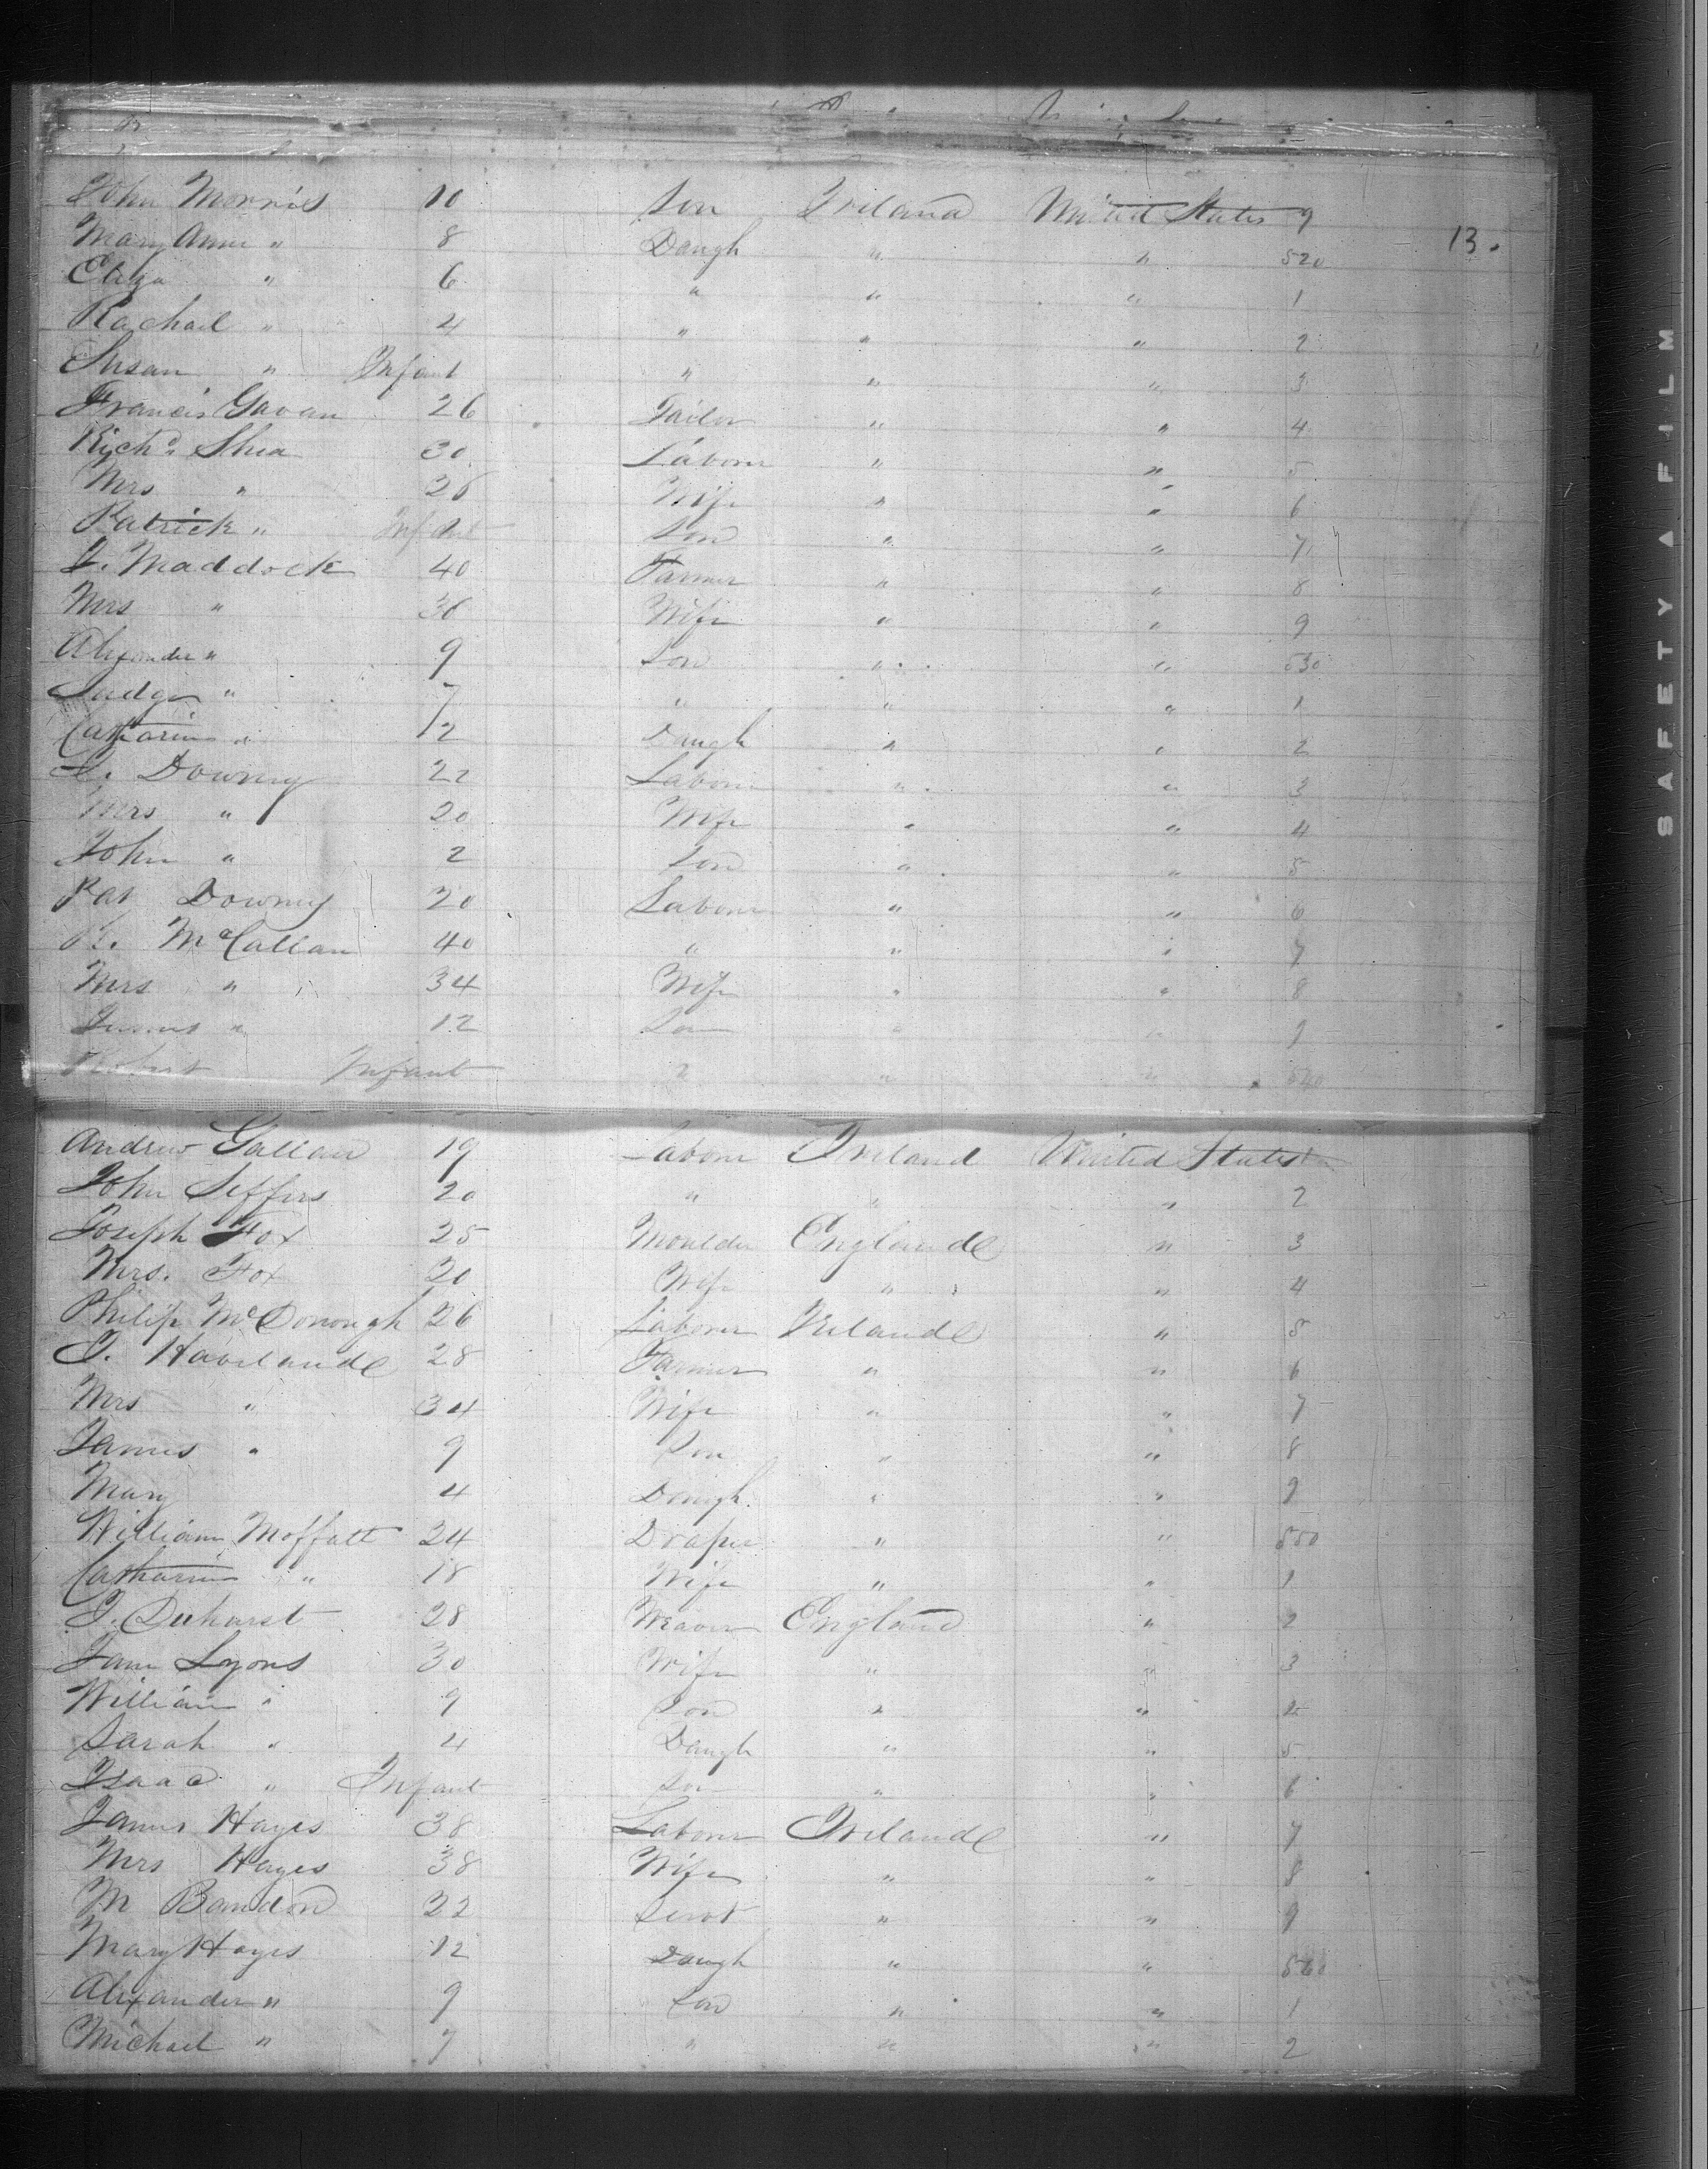 John Morris 10 Son Ireland United States 9
13.
Mary Anne " 8 Daugh " " 520
Eliza " 6 " " " 1
Rachael " 4 " " " 2
Susan " Infant " " " 3
Francis Gavan 26 Tailor " " 4
Richd. Shea 30 Labourer " " 5
Mrs " 26 Wife " " 6
Patrick " Infant Son " " 7
J. Maddock 40 Farmer " " 8
Mrs " 36 Wife " " 9
Alexander " 9 Son " " 530
" 7 " " " 1
Catharine " 12 Daugh " " 2
Downey 22 Labourer " " 3
Mrs " 20 Wife " " 4
John " 2 Son " " 5
Pat Downey 20 Labourer " " 6
McCallan 40 " " " 7
Mrs " 34 Wife " " 8
James " 12 Son " " 9
Robert Infant " " " 540
Andrew Gallan 19 Labour Ireland United States
John Seffers 20 " " " 2
Joseph Fox 25 Moulder England " 3
Mrs. Fox 20 Wife " " 4
Philip McDonough 26 Labourer Ireland " 5
J. Haveland 28 Farmer " " 6
Mrs " 34 Wife " " 7
James " 9 Son " " 8
Mary 4 Daugh " " 9
William Moffatt 24 Draper " " 550
Catharine " 18 Wife " " 1
J. Duhurst 28 Weaver England " 2
Jane Lyons 30 Wife " " 3
William " 9 Son " "
Sarah " 4 Daugh " " 5
Isaac " Infant Son " " 6
James Hayes 38 Labour Ireland " 7
Mrs Hayes 38 Wife " " 8
M Bandon 22 Servt " " 9
Mary Hayes 12 Daugh " " 560
Alexander " 9 Son " " 1
Michael " 7 " " " 2
SAFETY ▲ FILM